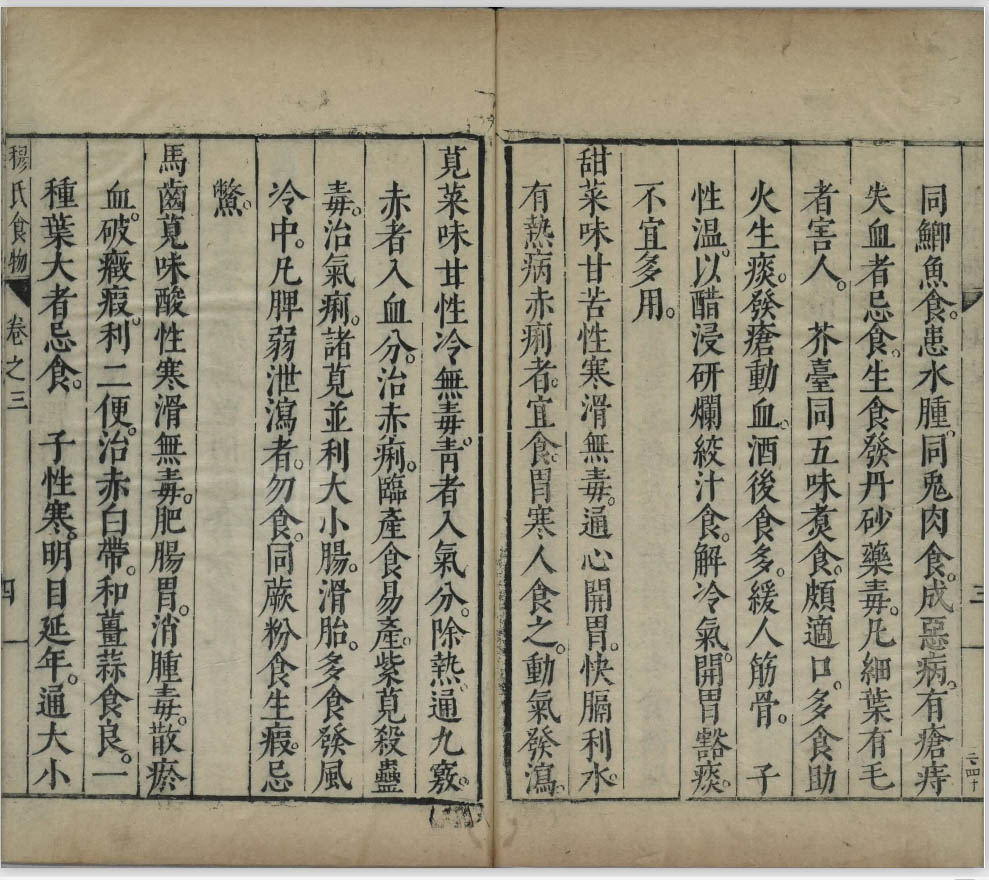 同鯽魚食。患水腫。同兎肉食。成惡病。有瘡痔
失血者忌食。生食發丹砂藥毒。凡細葉有毛
者害人。　芥臺同五味煑食。頗適口。多食助
火生痰。發瘡動血。酒後食多。緩人筋骨。　子
性温。以醋浸研爛絞汁食。解冷氣。開胃豁痰。
不宜多用。
甜菜味甘苦性寒滑無毒。通心開胃。快膈利水。
有熱病赤痢者。宜食。胃寒人食之。動氣發瀉。
莧菜味甘性冷無毒。青者入氣分。除熱。通九竅。
赤者入血分。治赤痢。臨產食易產。紫莧殺蠱
毒。治氣痢。諸莧並利大小腸。滑胎。多食發風
冷中。凡脾弱泄瀉者。勿食。同蕨粉食生瘕。忌
鱉。
馬齒莧味酸性寒滑無毒。肥腸胃。消腫毒。散瘀
血。破癥瘕。利二便。治赤白帶。和薑蒜食良。一
種葉大者忌食。　子性寒。明目延年。通大小
穆氏食物　卷之三　四